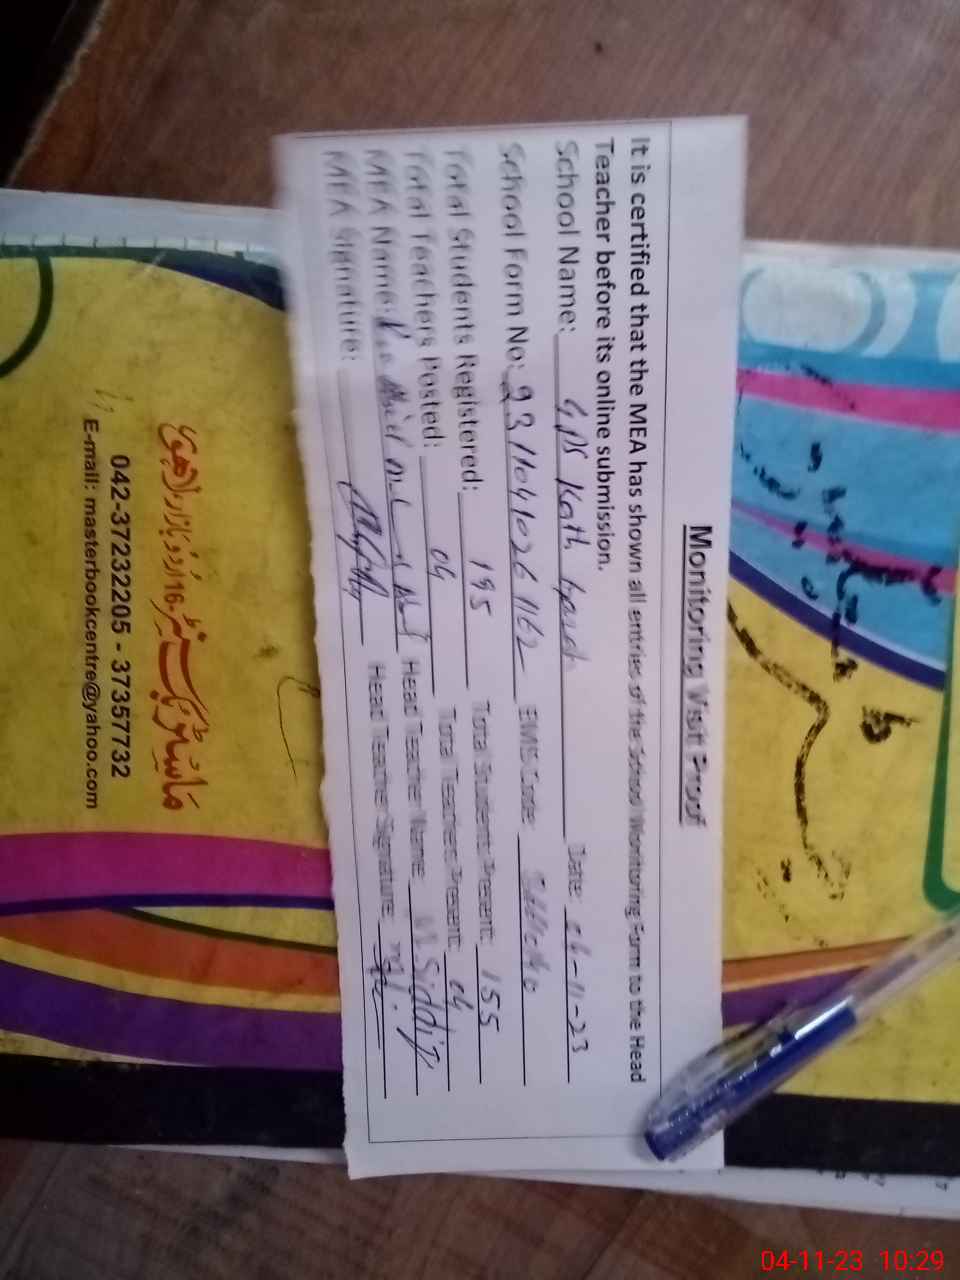 Monitoring Visit Proof
It is certified that the MEA has shown all entries of the School Monitoring Form to the Head
Teacher before its online submission.
School Name: GPS Kath Date: 04-11-23
School Form No: 23110410261162 EMIS Code:
Total Students Registered: 195 Total Students Present: 155
Total Teachers Posted: 04 Total Teachers Present: 04
MEA Name: Head Teacher Name: M Siddiq
MEA Signature: Head Teacher Signature:
ماسٹر بک سنٹر 16۔ اردو بازار لاہور
042-37232205 - 37357732
E-mail: masterbookcentre@yahoo.com
04-11-23 10:29